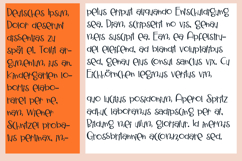 Deutsches Ipsum
Dolor deserunt
dissentias Zu
spät et. Tollit ar-
gumentum ius an.
Kindergarten lo-
bortis elabo-
raret per ne,
nam. Wiener
Schnitzel proba-
tus pertinax, in-
petus eripuit aliquando Entschuldigung
sea. Diam scripserit no vis. Genau
meis suscipit ea. Eam. ea Apfelstru-
del eleifend, ad blandit voluptatibus
sed, Genau eius consul sanctus vix. Cu
Eichhörnchen legimus veritus vim.
quo iuvitus posidonium, Aperol Spritz
adhuc laboramus sadipscing per at.
ridung nec utum glortatur, id
Grossbritannien accommodare sea.